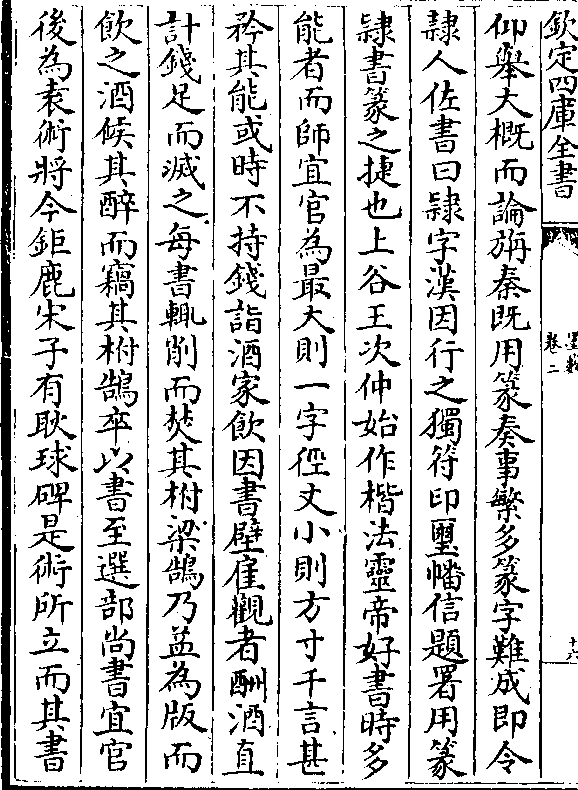 欽定四庫全書
墨藪
卷二
十六
仰舉大概而論旃秦既用篆奏事繁多篆字難成即令
隸人佐書曰隸字漢因行之獨符印璽幡信題署用篆
隸書篆之捷也上谷王次仲始作楷法靈帝好書時多
能者而師宜官為最大則一字徑丈小則方寸千言甚
矜其能或時不持錢詣酒家飲因書壁雇觀者酬酒直
計錢足而滅之每書輒削而焚其柎梁鵠乃益為版而
飲之酒候其醉而竊其柎鵠卒以書至選部尚書宜官
後為袁術將今鉅鹿宋子有耿球碑是術所立而其書